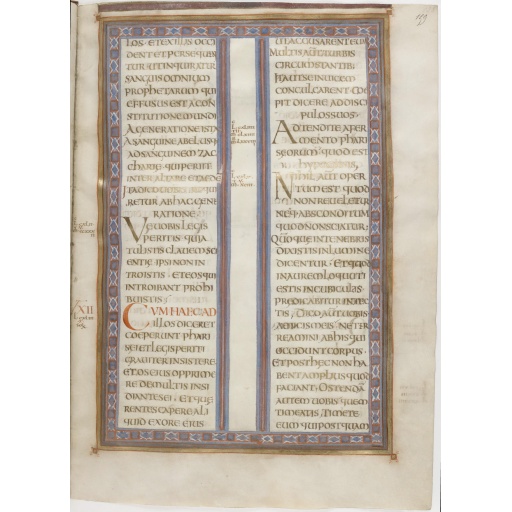 LOS. ET EX ILLIS OCCI
DENT ET PERSEQUEN
TUR UT INQUIRATUR
SANGUIS OMNIUM
PROPHETARUM QUI
EFFUSUS EST A CON
STITUTIONE MUNDI
A GENERATIONE ISTA
A SANGUINE ABEL USQ
AD SANGUINEM ZAC
CHARIAE QUI PERIIT
INTER ALTARE ET AEDE
ITA DICO UOBIS REQUI
RETUR AB HAC GENE
RATIONE
VAE UOBIS LEGIS
PERITIS QUIA
TULISTIS CLAUEM SCI
ENTIAE IPSI NON IN
TROISTIS ET EOS QUI
INTROIBANT PROHI
BUISTIS
XII
CUM HAEC AD
ILLOS DICERET
COEPERUNT PHARI
SEI ET LEGIS PERITI
GRAUITER INSISTERE
ET OS EIUS OPPRIME
RE DE MULTIS INSI
DIANTES EI ET QUE
RENTES CAPERE ALI
QUID EX ORE EIUS
UT ACCUSARENT EUM
MULTIS AUTEM TURBIS
CIRCUMSTANTIB
ITA UT SE INUICEM
CONCULCARENT COE
PIT DICERE AD DISCI
PULOS SUOS
ADTENDITE A FER
MENTO PHARI
SEORUM QUOD EST
hypocrisis
NIHIL AUT OPER
TUM EST QUOD
NON REUELETUR
NEQ ABSCONDITUM
QUOD NON SCIATUR
QUO QUAE IN TENEBRIS
DIXISTIS IN LUMINE
DICENTUR ET QUOD
IN AUREM LOQUUTI
ESTIS IN CUBICULIS
PRAEDICABITUR IN TEC
TIS, DICO AUT UOBIS
AMICIS MEIS NE TER
REAMINI AB HIS QUI
OCCIDUNT CORPUS
ET POST HAEC NON HA
BENT AMPLIUS QUOD
FACIANT. OSTENDA
AUTEM UOBIS QUEM
TIMEATIS, TIMETE
EUM QUI POSTQUAM